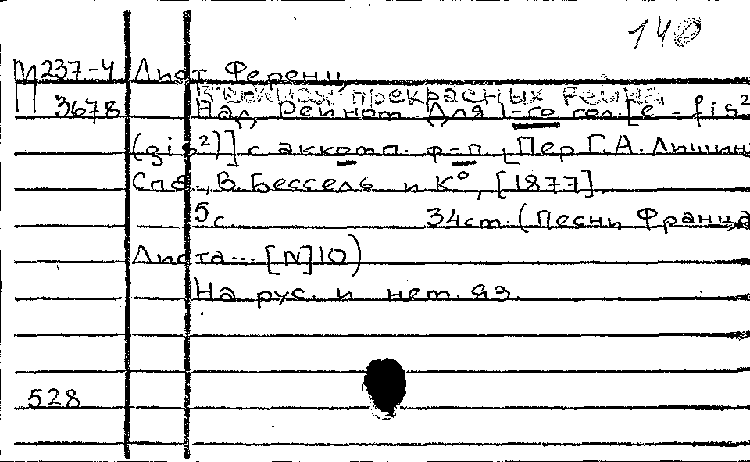 140
М 237-4 Лист Ференц
П 3678 В волнах прекрасных Рейна
Над Рейном. Для 1-го гол. [e - fis²
(gis²)] с аккомп. ф-п. [Пер. Г.А. Лишин
Спб., В. Бессель и К°, [1877].
5 с. 34 cm. (Песни Франца
Листа... [N] 10)
На рус. и нем. яз.
528